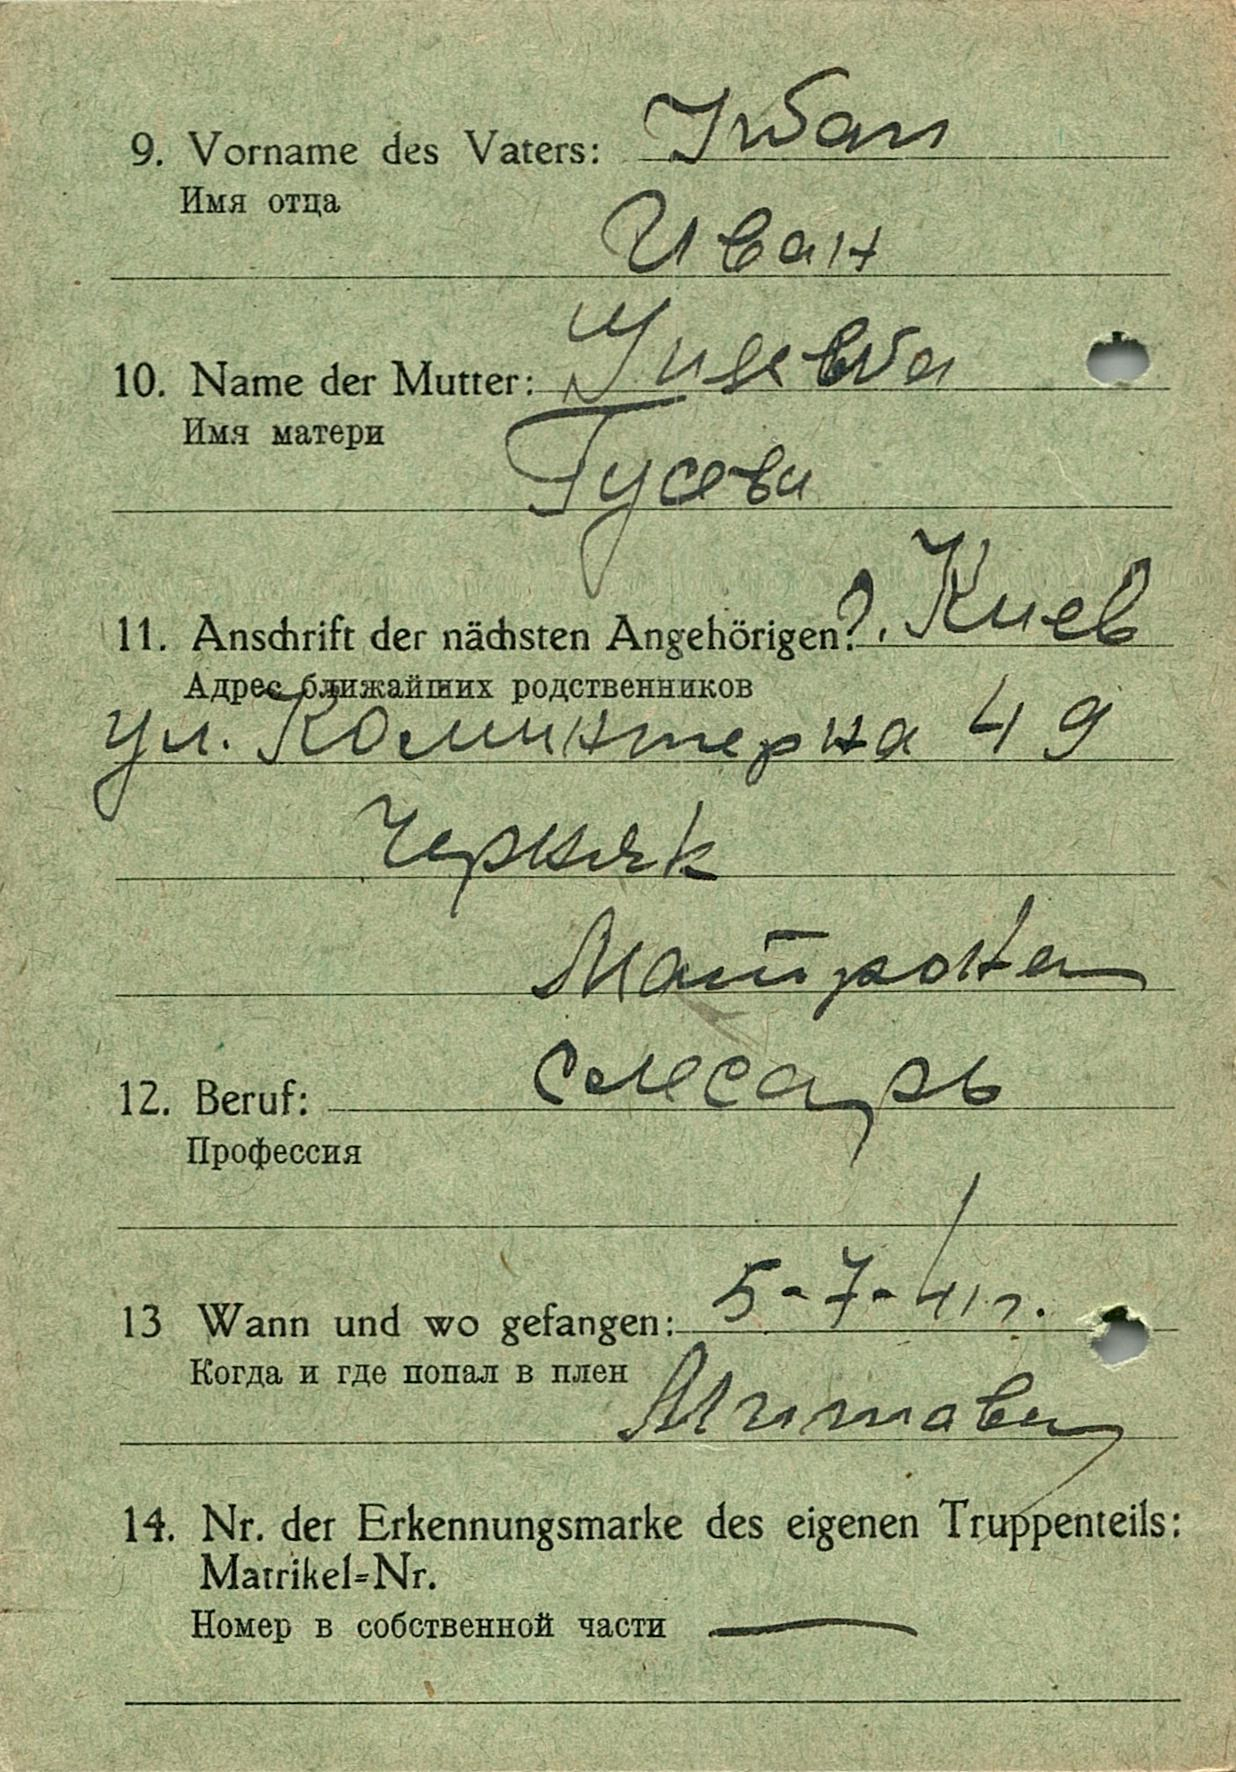 9. Vorname des Vaters: Iwan
Имя отца
Иван
10. Name der Mutter:
Имя матери
Гусева
11. Anschrift der nächsten Angehörigen?. Киев
Адрес ближайших родственников
ул. Коминтерна 49
Черняк
Матрона
12. Beruf: слесарь
Профессия
13 Wann und wo gefangen: 5-7-41 г.
Когда и где попал в плен
Митава
14. Nr. der Erkennungsmarke des eigenen Truppenteils:
Matrikel=Nr.
Номер в собственной части —